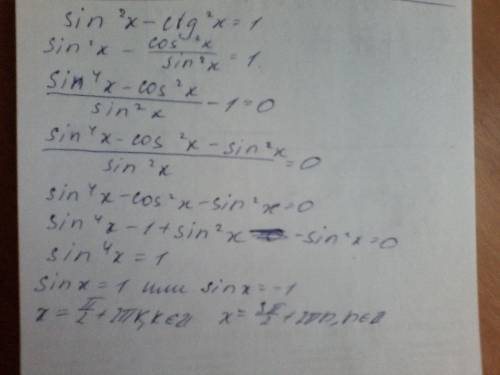 sin²x - ctg²x = 1
sin²x - cos²x/sin²x = 1.
(sin⁴x - cos²x)/sin²x - 1 = 0
(sin⁴x - cos²x - sin²x)/sin²x = 0
sin⁴x - cos²x - sin²x = 0
sin⁴x - 1 + sin²x - sin²x = 0
sin⁴x = 1
sinx = 1 или sinx = -1
x = π/2 + 2πk, k∈Z x = 3π/2 + 2πn, n∈Z